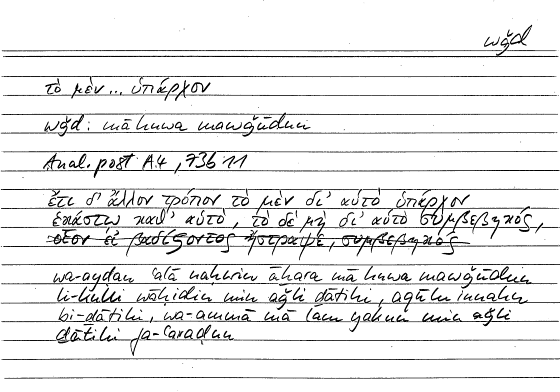 wǧd
τὸ μὲν... ὑπάρχον
wǧd: mā huwa mawǧūdun
Anal. post A4, 73b11
ἔτι δ' ἄλλον τρόπον τὸ μὲν δι' αὑτὸ ὑπάρχον
ἑκάστῳ καθ' αὑτό, τὸ δὲ μὴ δι' αὑτὸ συμβεβηκός,
οἷον εἰ βαδίζοντος ἤστραψε, συμβεβηκός
wa-ayḍan ʿalā naḥwin āḫara mā huwa mawǧūdun
li-kulli wāḥidin min aǧli ḏātihi, aqūlu innahu
bi-ḏātihi, wa-ammā mā lam yakun min aǧli
ḏātihi fa-ʿaraḍun